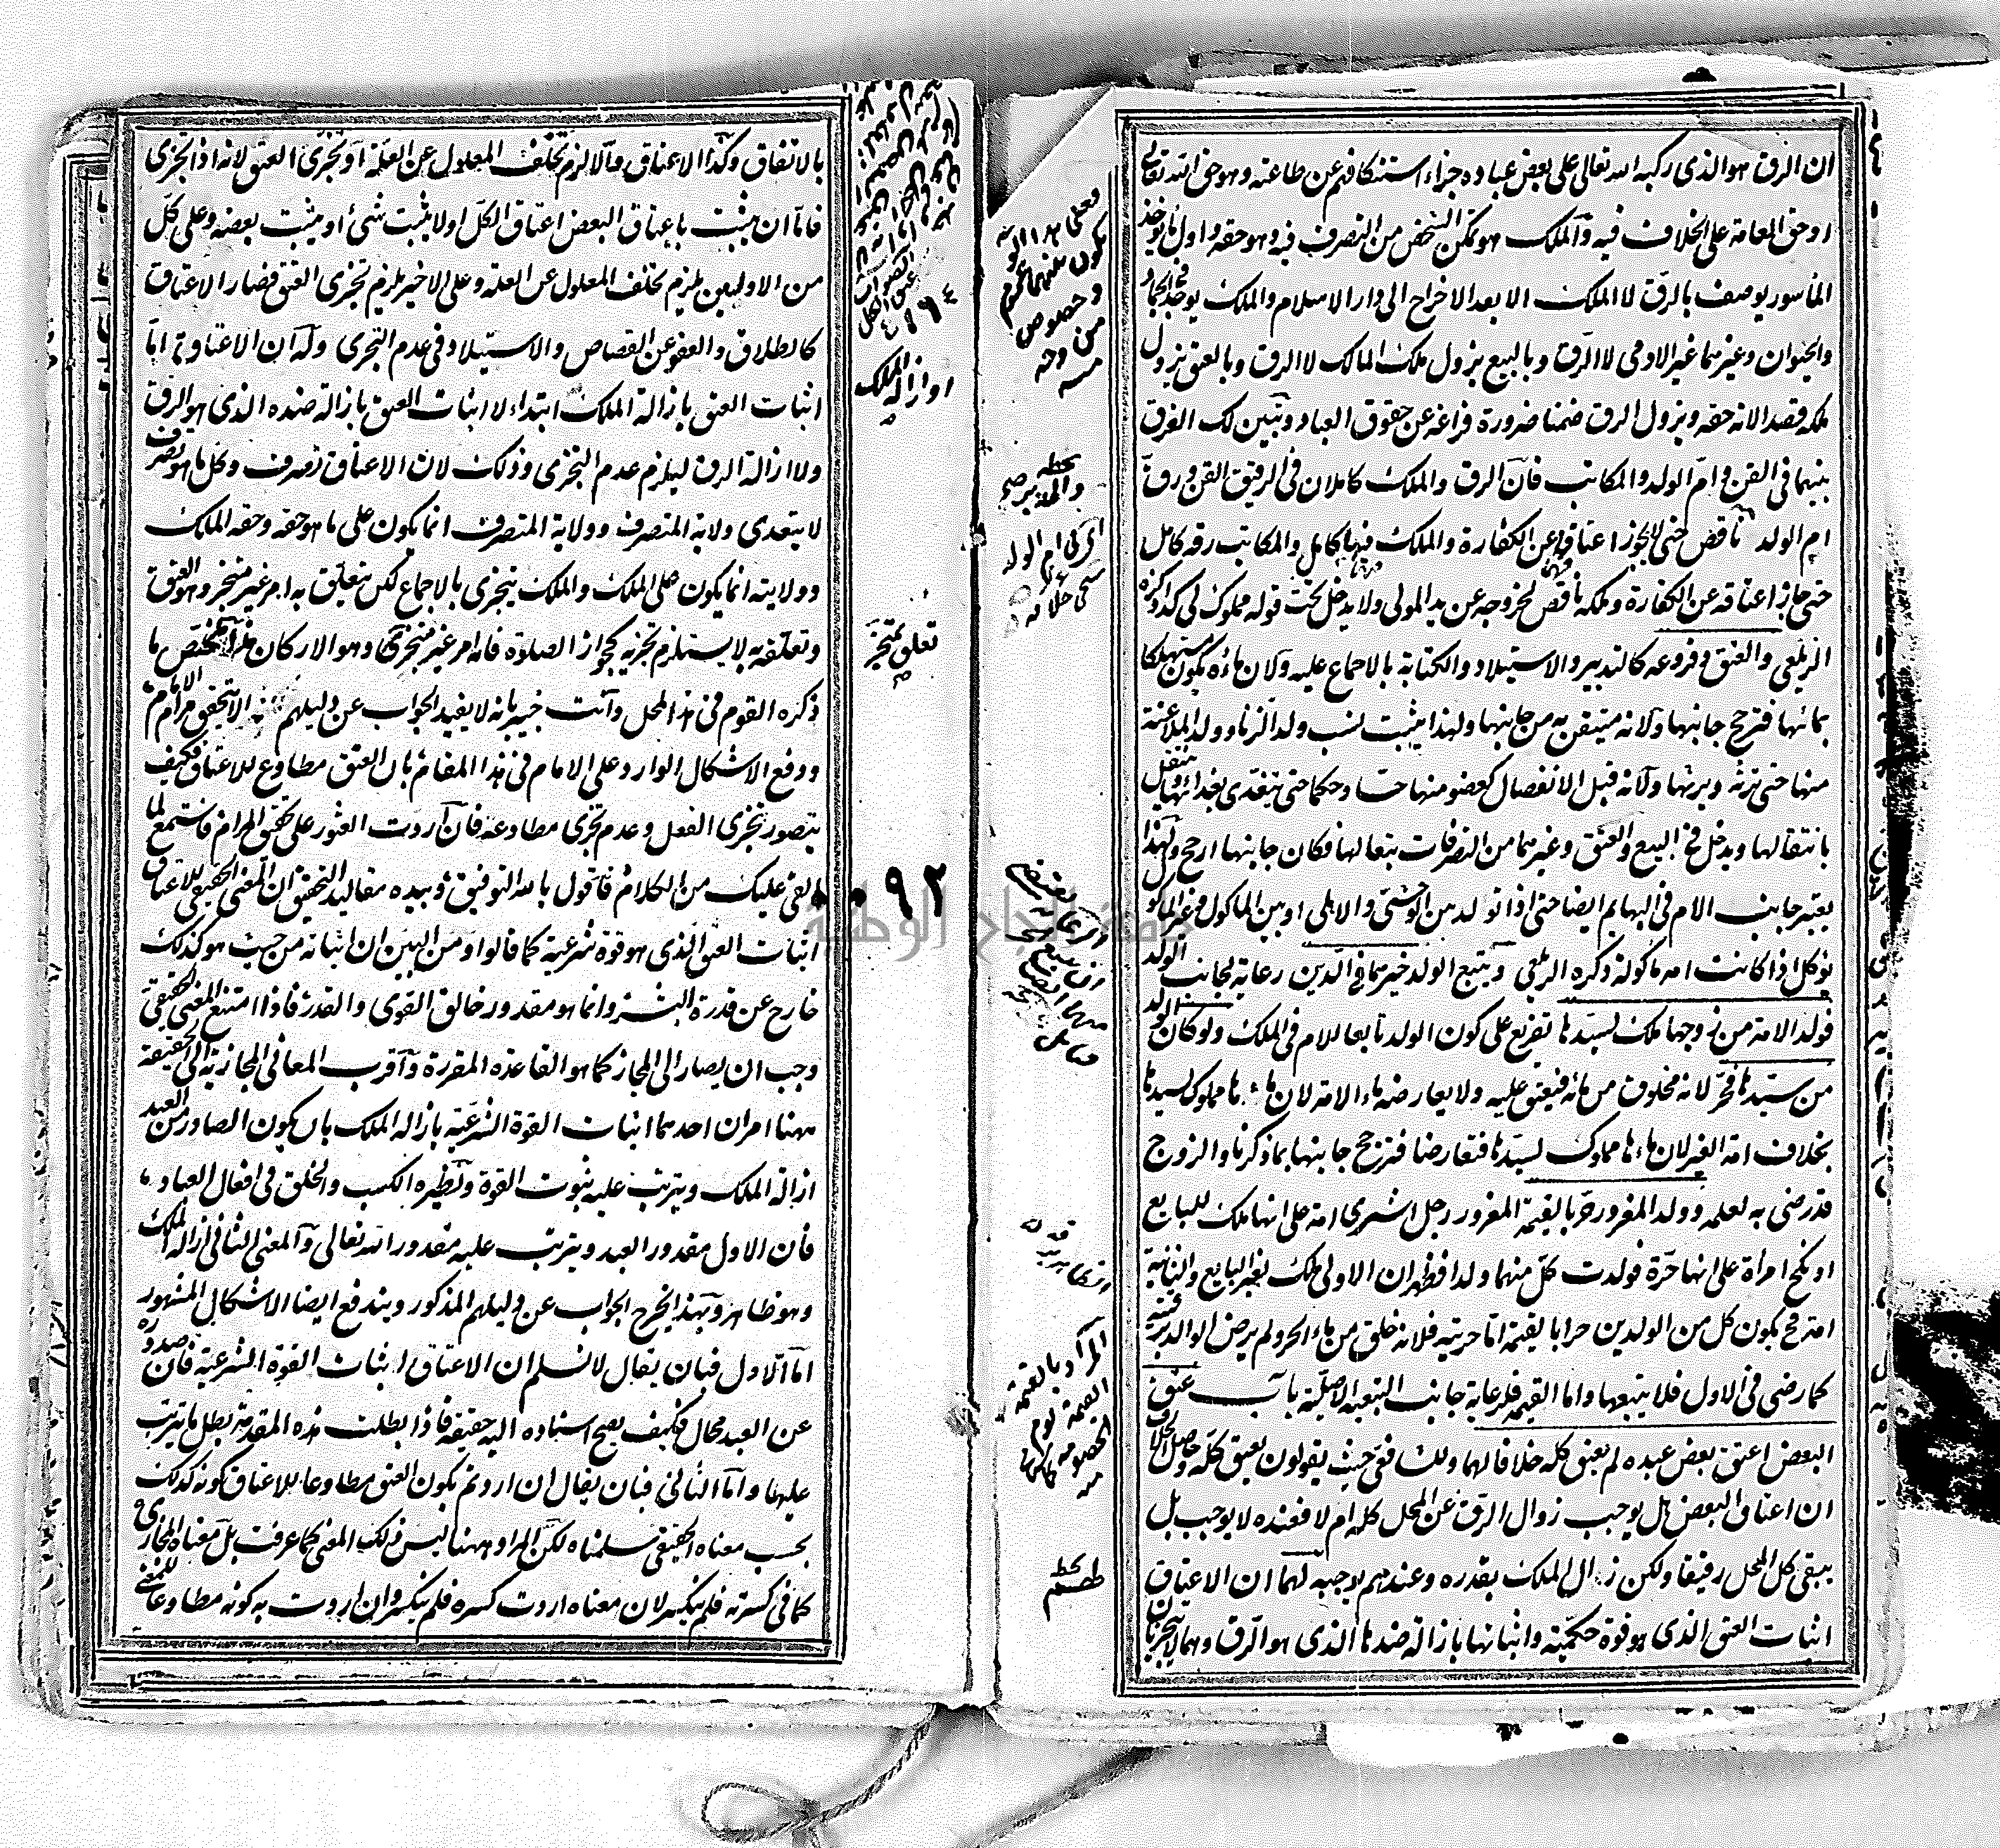 ان الرق هو الذى ركبه الله تعالى على بعض عباده جزاء استنكافهم عن طاعته وهو حق الله تعالى
او حق العامة على الخلاف فيه والملك هو تمكن الشخص من التصرف فيه وهو حقه واول ما يوخذ
المأسور يوصف بالرق لا الملك الا بعد الاخراج الى دار الاسلام والملك يوجد فى الجماد
والحيوان وغيرهما غير الادمى لا الرق وبالبيع يزول ملك المالك لا الرق وبالعتق يزول
ملكه قصدا لانه حقه ويزول الرق ضمنا ضرورة فراغه عن حقوق العباد وتبين لك الفرق
بينهما فى القن وام الولد والمكاتب فان الرق والملك كاملان فى الرقيق القن ورق
ام الولد ناقص حتى لا يجوز اعتاقها عن الكفارة والملك فيها كامل والمكاتب رقه كامل
حتى جاز اعتاقه عن الكفارة وملكه ناقص لخروجه عن يد المولى ولا يدخل تحت قوله مملوك لى كذا ذكره
الزيلعى والعتق وفروعه كالتدبير والاستيلاد والكتابة بالاجماع عليه ولان ماءه يكون مستهلكا
بمائها فترجح جانبها ولانه متيقن به من جانبها ولهذا يثبت نسب ولد الزنا وولد الملاعنة
منها حتى ترثه ويرثها ولانه قبل الانفصال كعضو منها حسا وحكما حتى يتغذى بغذائها وينتقل
بانتقالها ويدخل فى البيع والعتق وغيرهما من التصرفات تبعا لها فكان جانبها ارجح ولهذا
يعتبر جانب الام فى البهايم ايضا حتى اذا تولد بين الوحشى والاهلى او بين الماكول وغير الماكول
يؤكل اذا كانت امه ماكولة ذكره الزيلعى ويتبع الولد خيرهما فى الدين رعاية لجانب الولد
فولد الامة من زوجها ملك لسيدها تفريع على كون الولد تابعا للام فى الملك ولو كان الولد
من سيدها فحر لانه مخلوق من مائه فيعتق عليه ولا يعارضه ماء الامة لان ماءها مملوك لسيدها
بخلاف امة الغير لان ماءها مملوك لسيدها فتعارضا فترجح جانبها بما ذكرنا والزوج
قد رضى به لعلمه وولد المغرور حر بالقيمة المغرور رجل اشترى امة على انها ملك للبايع
او نكح امراة على انها حرة فولدت كل منهما ولدا فظهر ان الاولى ملك لغير البايع والثانية
امة فح يكون كل من الولدين حرا بالقيمة اما حريته فلانه خلق من ماء الحر ولم يرض الوالد برقيته
كما رضى فى الاول فلا يتبعها واما القيمة فلرعاية جانب التبعية الاصلية باب عتق
البعض اعتق بعض عبده لم يعتق كله خلافا لهما وللشافعى حيث يقولون يعتق كله وحاصل الخلاف
ان اعتاق البعض هل يوجب زوال الرق عن المحل كله ام لا فعنده لا يوجب بل
يبقى كل المحل رقيقا ولكن زال الملك بقدره وعندهم يوجبه لهما ان الاعتاق
اثبات العتق الذى هو قوة حكمية واثباتها بازالة ضدها الذى هو الرق وهما لا يتجزيان
والمدبر صح
بالاتفاق وكذا الاعتاق والا لزم تخلف المعلول عن العلة او تجزى العتق لانه اذا تجزى
فاما ان يثبت باعتاق البعض اعتاق الكل او لا يثبت شئ او يثبت بعضه وعلى كل
من الاوليين يلزم تخلف المعلول عن العلة وعلى الاخير يلزم تجزى العتق فصار الاعتاق
كالطلاق والعفو عن القصاص والاستيلاد فى عدم التجزى وله ان الاعتاق اما
اثبات العتق بازالة الملك ابتداء لا اثبات العتق بازالة ضده الذى هو الرق
ولا ازالة الرق ليلزم عدم التجزى وذلك لان الاعتاق تصرف وكل ما هو تصرف
لا يتعدى ولاية المتصرف وولاية المتصرف انما يكون على ما هو حقه وحقه الملك
وولايته انما يكون على الملك والملك يتجزى بالاجماع لكن يتعلق به امر غير متجز وهو العتق
وتعلقه به لا يستلزم تجزيه كجواز الصلوة فانه امر غير متجزى وهو الاركان هذا ملخص ما
ذكره القوم فى هذا المحل وانت خبير بانه لا يفيد الجواب عن دليلهم الا بتحقق مرام الامام
ودفع الاشكال الوارد على الامام فى هذا المقام بان العتق مطاوع للاعتاق فكيف
يتصور تجزى الفعل وعدم تجزى مطاوعه فان اردت العثور على تحقيق المرام فاستمع لما
القى عليك من الكلام فاقول بالله التوفيق وبيده مقاليد التحقيق ان المعنى الحقيقى للاعتاق
اثبات العتق الذى هو قوة شرعية كما قالوا ومن البين ان اثباته من حيث هو كذلك
خارج عن قدرة البشر وانما هو مقدور خالق القوى والقدر فاذا امتنع المعنى الحقيقى
وجب ان يصار الى المجاز كما هو القاعدة المقررة واقرب المعانى المجازية الى الحقيقة
ههنا امران احدهما اثبات القوة الشرعية بازالة الملك بان يكون الصادر من العبد
ازالة الملك ويترتب عليه ثبوت القوة ونظيره الكسب والخلق فى افعال العباد
فان الاول مقدور العبد ويترتب عليه مقدور الله تعالى والمعنى الثانى ازالة الملك
وهو ظاهر وبهذا يخرج الجواب عن دليلهم المذكور ويندفع ايضا الاشكال المشهور
اما الاول فبان يقال لا نسلم ان الاعتاق اثبات القوة الشرعية فان صدوره
عن العبد محال فكيف يصح اسناده اليه حقيقة فاذا بطلت هذه المقدمة بطل ما يترتب
عليها واما الثانى فبان يقال ان اردتم بكون العتق مطاوعا للاعتاق كونه كذلك
بحسب معناه الحقيقى سلمناه لكن المراد ههنا ليس ذلك المعنى كما عرفت بل معناه المجازى
كما فى كسرته فلم ينكسر لان معناه اردت كسره فلم ينكسر وان اردت به كونه مطاوعا للمعنى
او ازالة الملك
٠٩٢